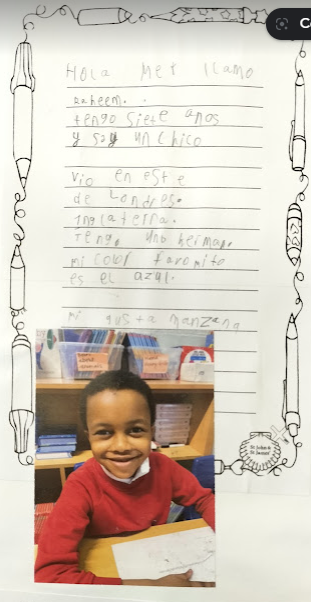 Hola Me llamo
raheem.
tengo siete anos
y soy un chico
Vio en este
de Londres.
inglaterra.
Tengo una herman.
mi color favorito
es el azul.
mi gusta manzana
St. John &